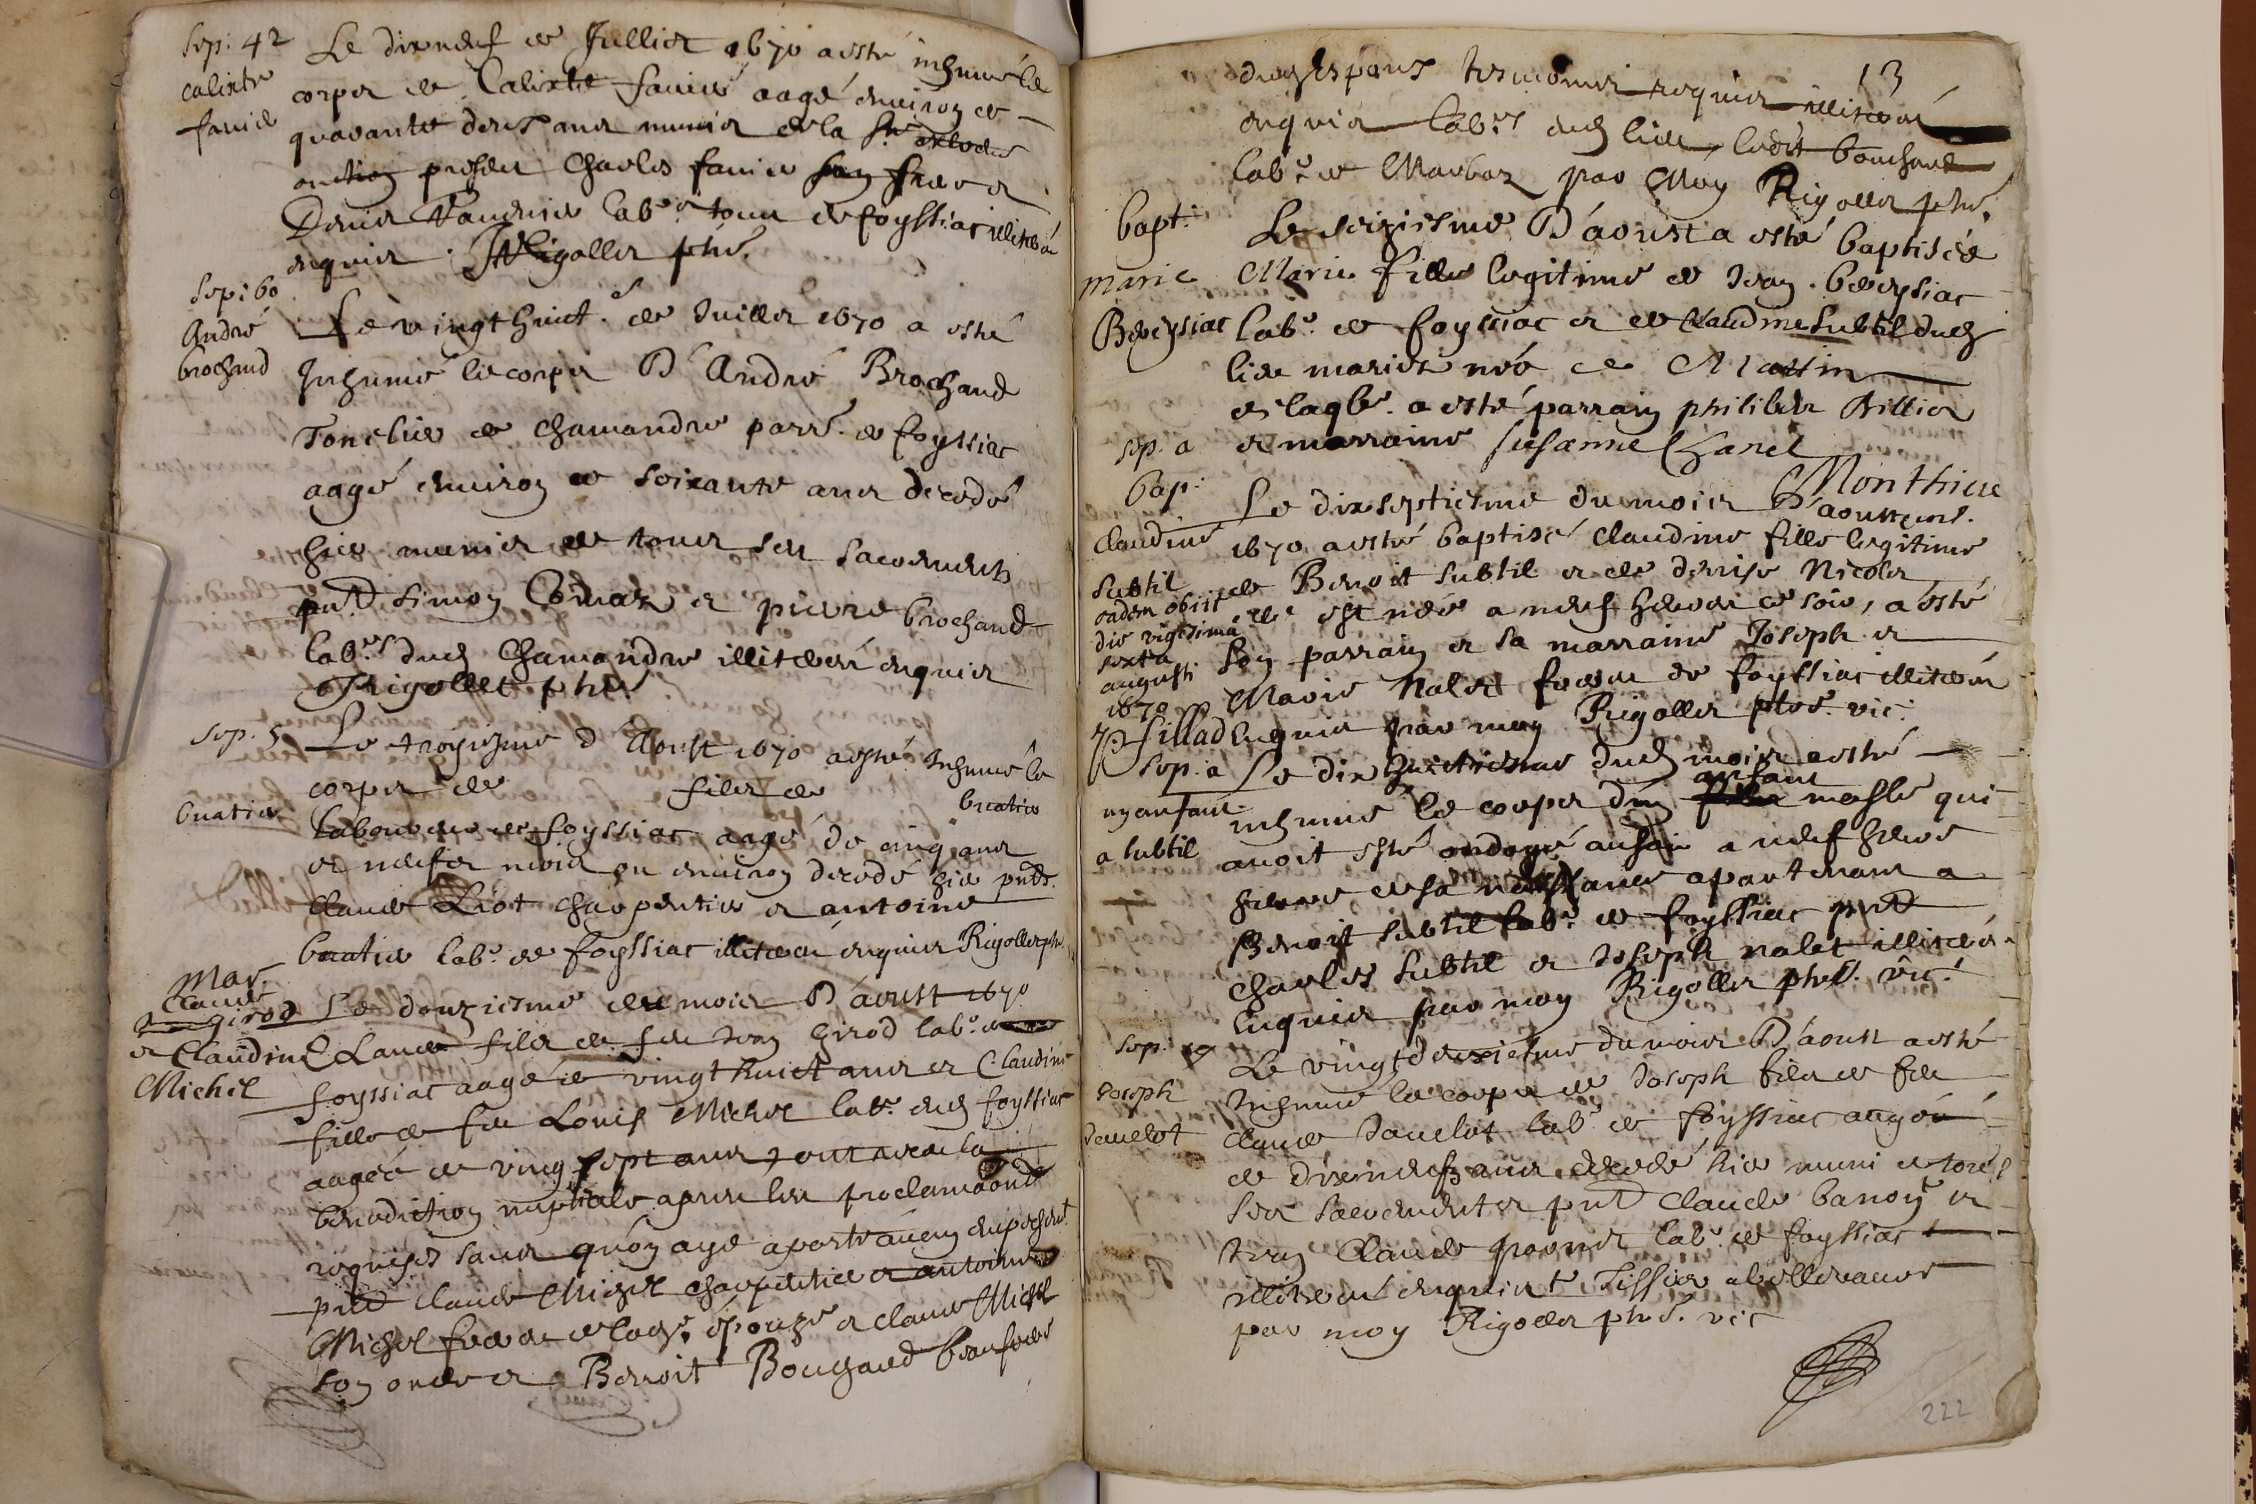 Sep. 42
Calixte
favier
Le dixneuf de Jullier 1670 a esté inhumé le
corps de Calixte favier aagé environ de
quarante deux ans munir de la Ste extreme
onction presens Charles favier son frere et
Denis lab.r tous de foyssiac illiteré
enquis. Rigollet ptre.
Sep. 60
André
brochand
Le vingt huict.e de Juillet 1670 a esté
Inhumé le corps D'André Brochand
Tonelier de chamandre parr. de foyssiac
aagé environ de soixante ans decedé
hier munir de tous ses sacrements
pnt simon et pierre brochand
lab.rs dud Chamandre illiteré enquis
Rigollet ptre
Sep. 5
buatier
Le troysiesme d'Aoust 1670 a esté Inhumé le
corps de fils de buatier
laboureur de foyssiac aagé de cinq ans
et neuf mois ou environ decedé hier pnts.
Claude Liot charpentier et antoine
buatier lab.r de foyssiac illiteré enquis Rigollet ptre
Mar.
Claude
girod
et Claudine
Michel
Le douziesme du mois D'aoust 1670
Claude fils de feu Jean Girod lab.r de
foyssiac aagé de vingt huict ans et Claudine
fille de feu Louis Michel lab.r dud foyssiac
aagée de vingt sept ans, ont receu la
benediction nuptiale apres les proclamaons
requises sans qu'on aye aporté aucun enpeschent
pnt claude Michel charpentier et antoine
Michel freres de lad. épouze et claude Michel
son oncle et Benoit Bouchard beaufrere
13
desd espoux tesmoins requis illiteré
enquis lab.rs dud lieu, ledit bouchard
lab.r de Marboz par Moy Rigollet ptre.
bapt.
marie
Le seiziesme D'aoust a esté baptisée
Marie fille legitime de Jean
lab.r de foyssiac et de Claudine Subtil dud
lieu mariés née ce Matin
et a esté parrain philibert
et marraine susanne
Monthieu
sep. a
bap.
Claudine
Subtil
eadem obiit
die vigesima
sexta
augusti
1670
Le dixseptiesme du mois D'aoust
1670 a esté baptisé claudine fille legitime
de Benoit subtil et de denise Nicolet
elle est née a neuf heures ce soir, a esté
son parrain et sa marraine Joseph et
Marie Nalet freres de foyssiac illiteré
enquis par moy Rigollet ptre. vic.
fillad
sep. a
un enfant
a subtil
Le dix huictiesme dud mois a esté
enfant
inhumé le corps d'un masle qui
avoit esté ondoyé a neuf heures
heure de sa naissance apartenant a
Benoit subtil lab.r de foyssiac pnt
Charles Subtil et Joseph nalet illiteré
Enquis par moy Rigollet ptre. vic.
Sep. 19
Joseph
Janelot
Le vingt deuxiesme du mois D'aoust a esté
Inhumé le corps de Joseph fils de feu
claude Janelot lab.r de foyssiac aagé
de dixneuf ans decedé hier muni de tous
ses sacrements pnt claude et
Jean Claude lab.r de foyssiac
illiteré enquis
par moy Rigollet ptre. vic
222